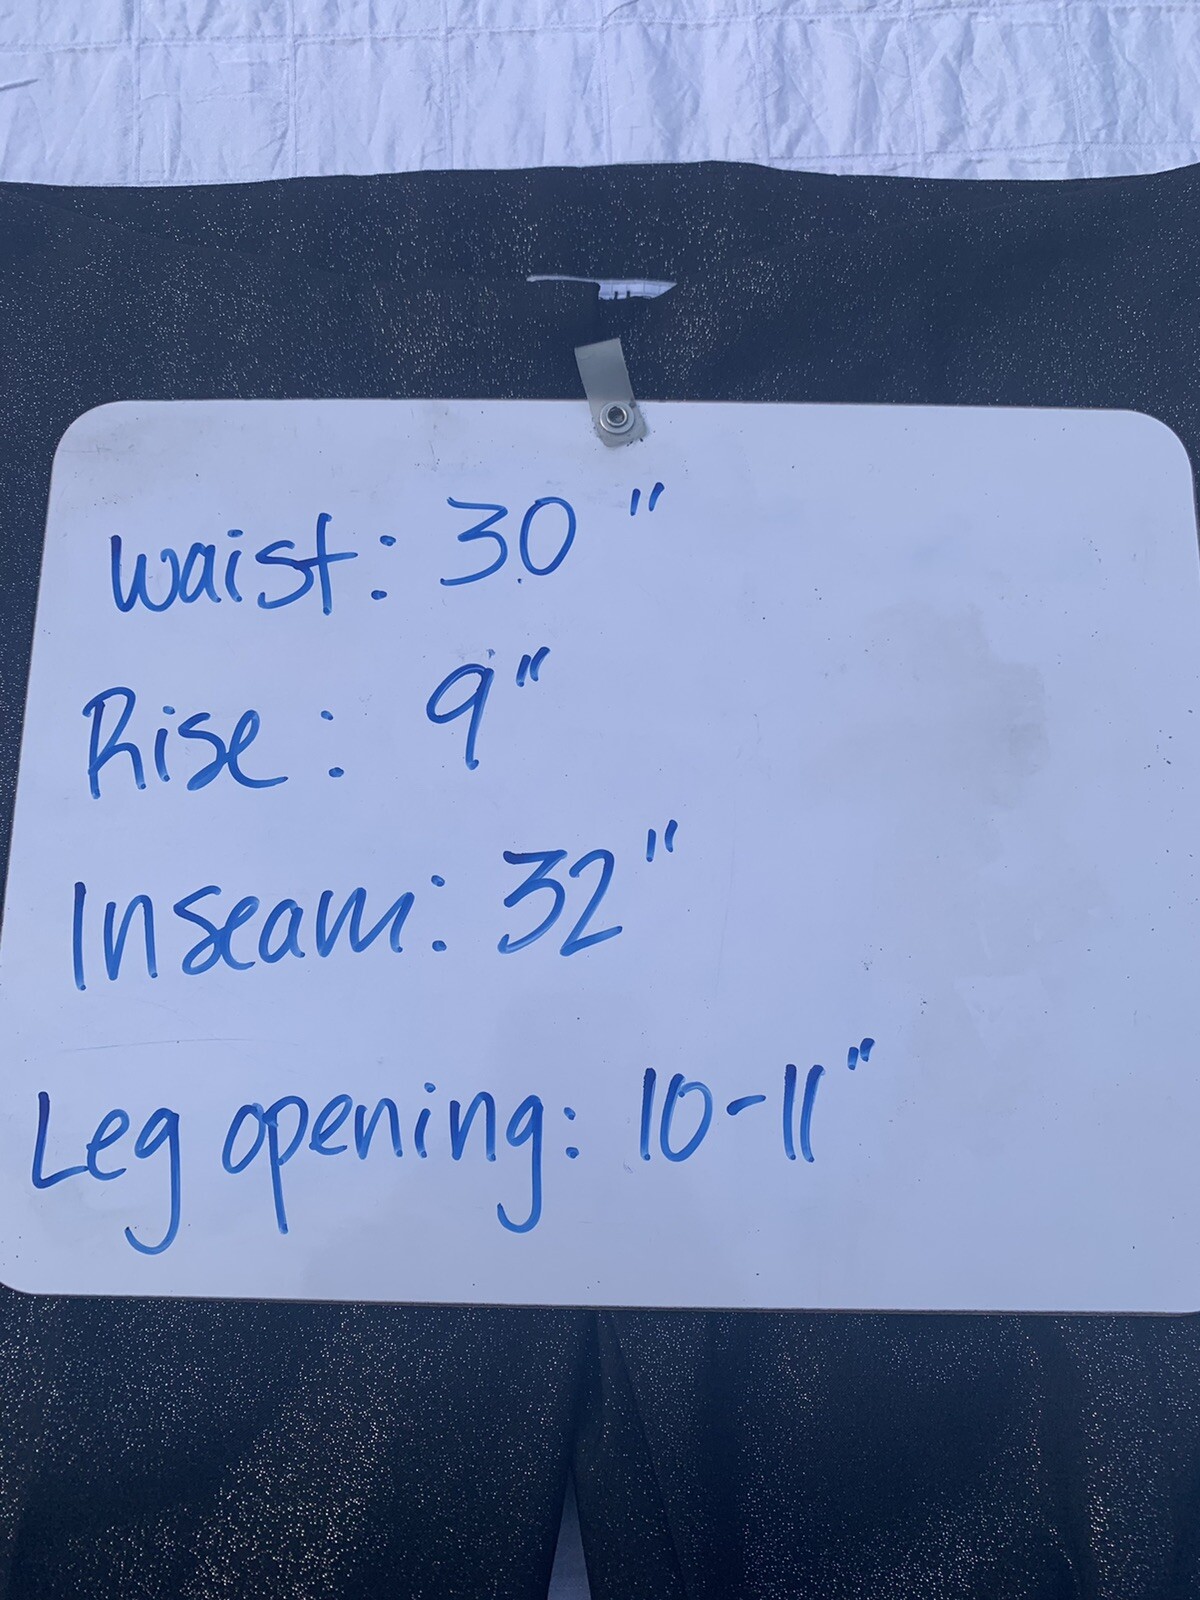 Waist: 30"
Rise: 9"
Inseam: 32"
Leg opening: 10-11"